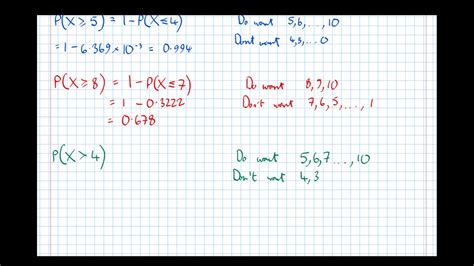 P(X ≥ 5) = 1 - P(X ≤ 4) Do want 5,6,...,10
= 1 - 6.369 × 10⁻³ = 0.994 Don't want 4,3,...0
P(X ≥ 8) = 1 - P(X ≤ 7) Do want 8,9,10
= 1 - 0.3222 Don't want 7,6,5,...,1
= 0.678
P(X > 4) Do want 5,6,7...,10
Don't want 4,3